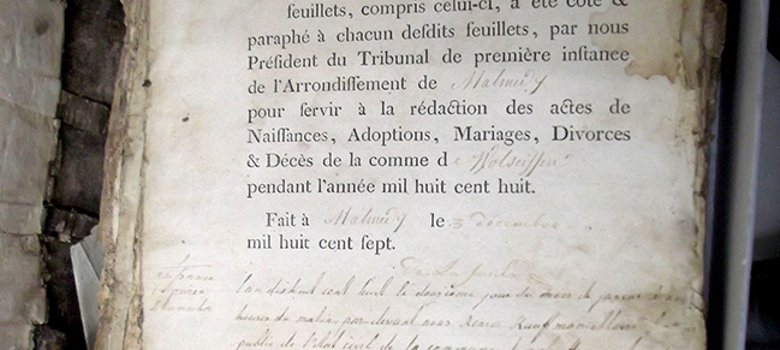 feuillets, compris celui-ci, a été coté &
paraphé à chacun deſdits feuillets, par nous
Préſident du Tribunal de première inſtance
de l'Arrondiſſement de Malmedy
pour ſervir à la rédaction des actes de
Naiſſances, Adoptions, Mariages, Divorces
& Décès de la comme d Wolseiffen
pendant l'année mil huit cent huit.
Fait à Malmedy le 3 décembre
mil huit cent ſept.
l'an dix huit cent huit le douzième jour du mois de janvier à
heures du matin, par devant nous Kauffman
public de l'état civil de la commune